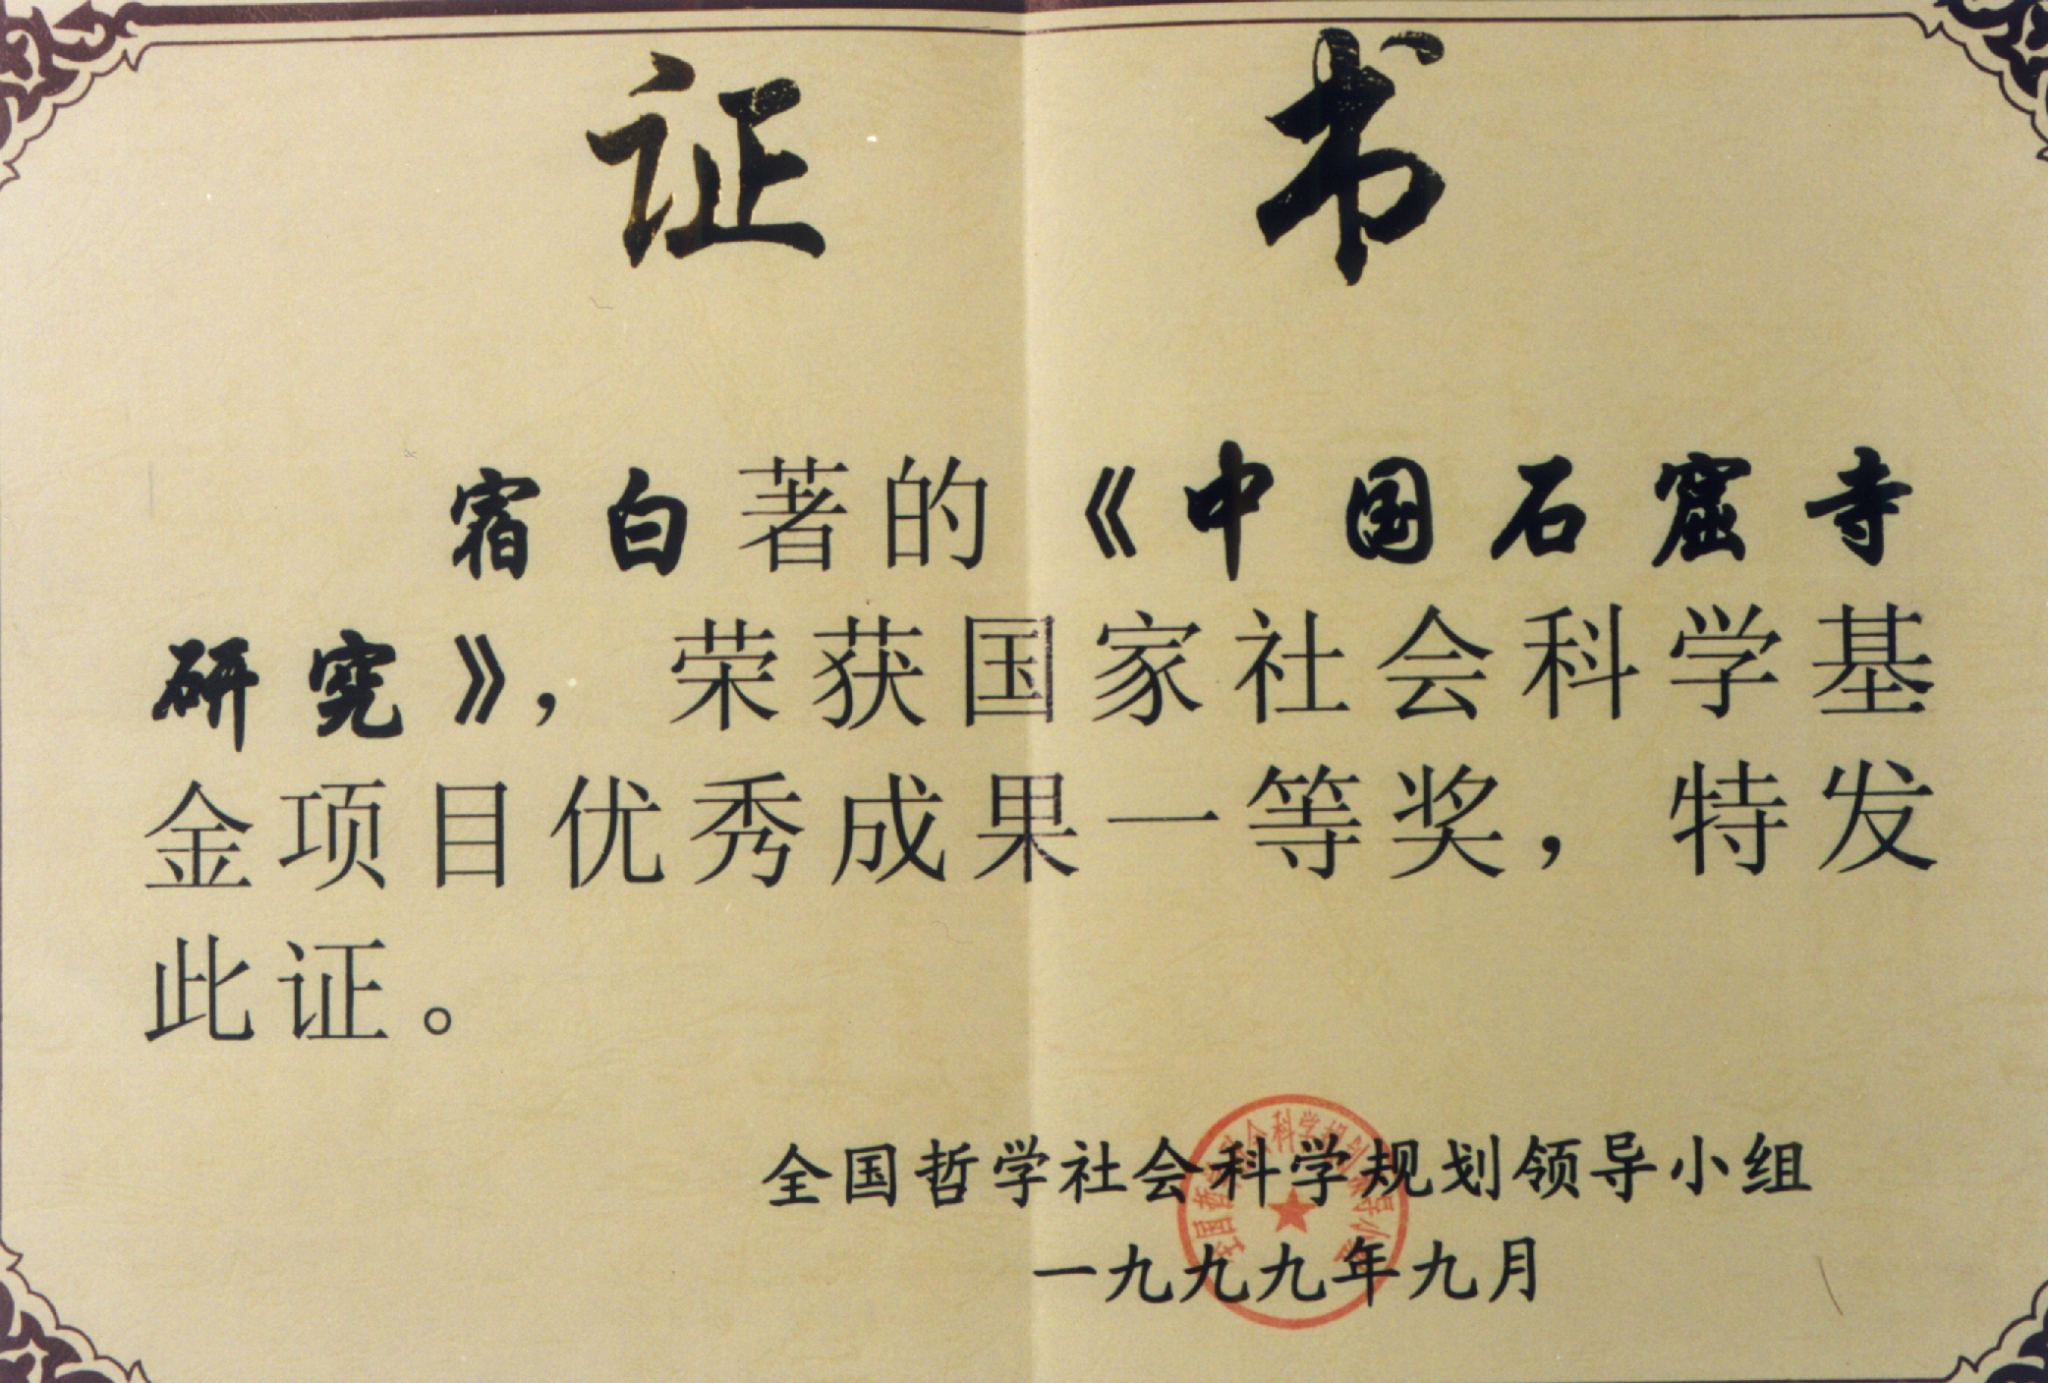 证书
宿白著的《中国石窟寺
研究》，荣获国家社会科学基
金项目优秀成果一等奖，特发
此证。
全国哲学社会科学规划领导小组
一九九九年九月
全国哲学社会科学规划领导小组